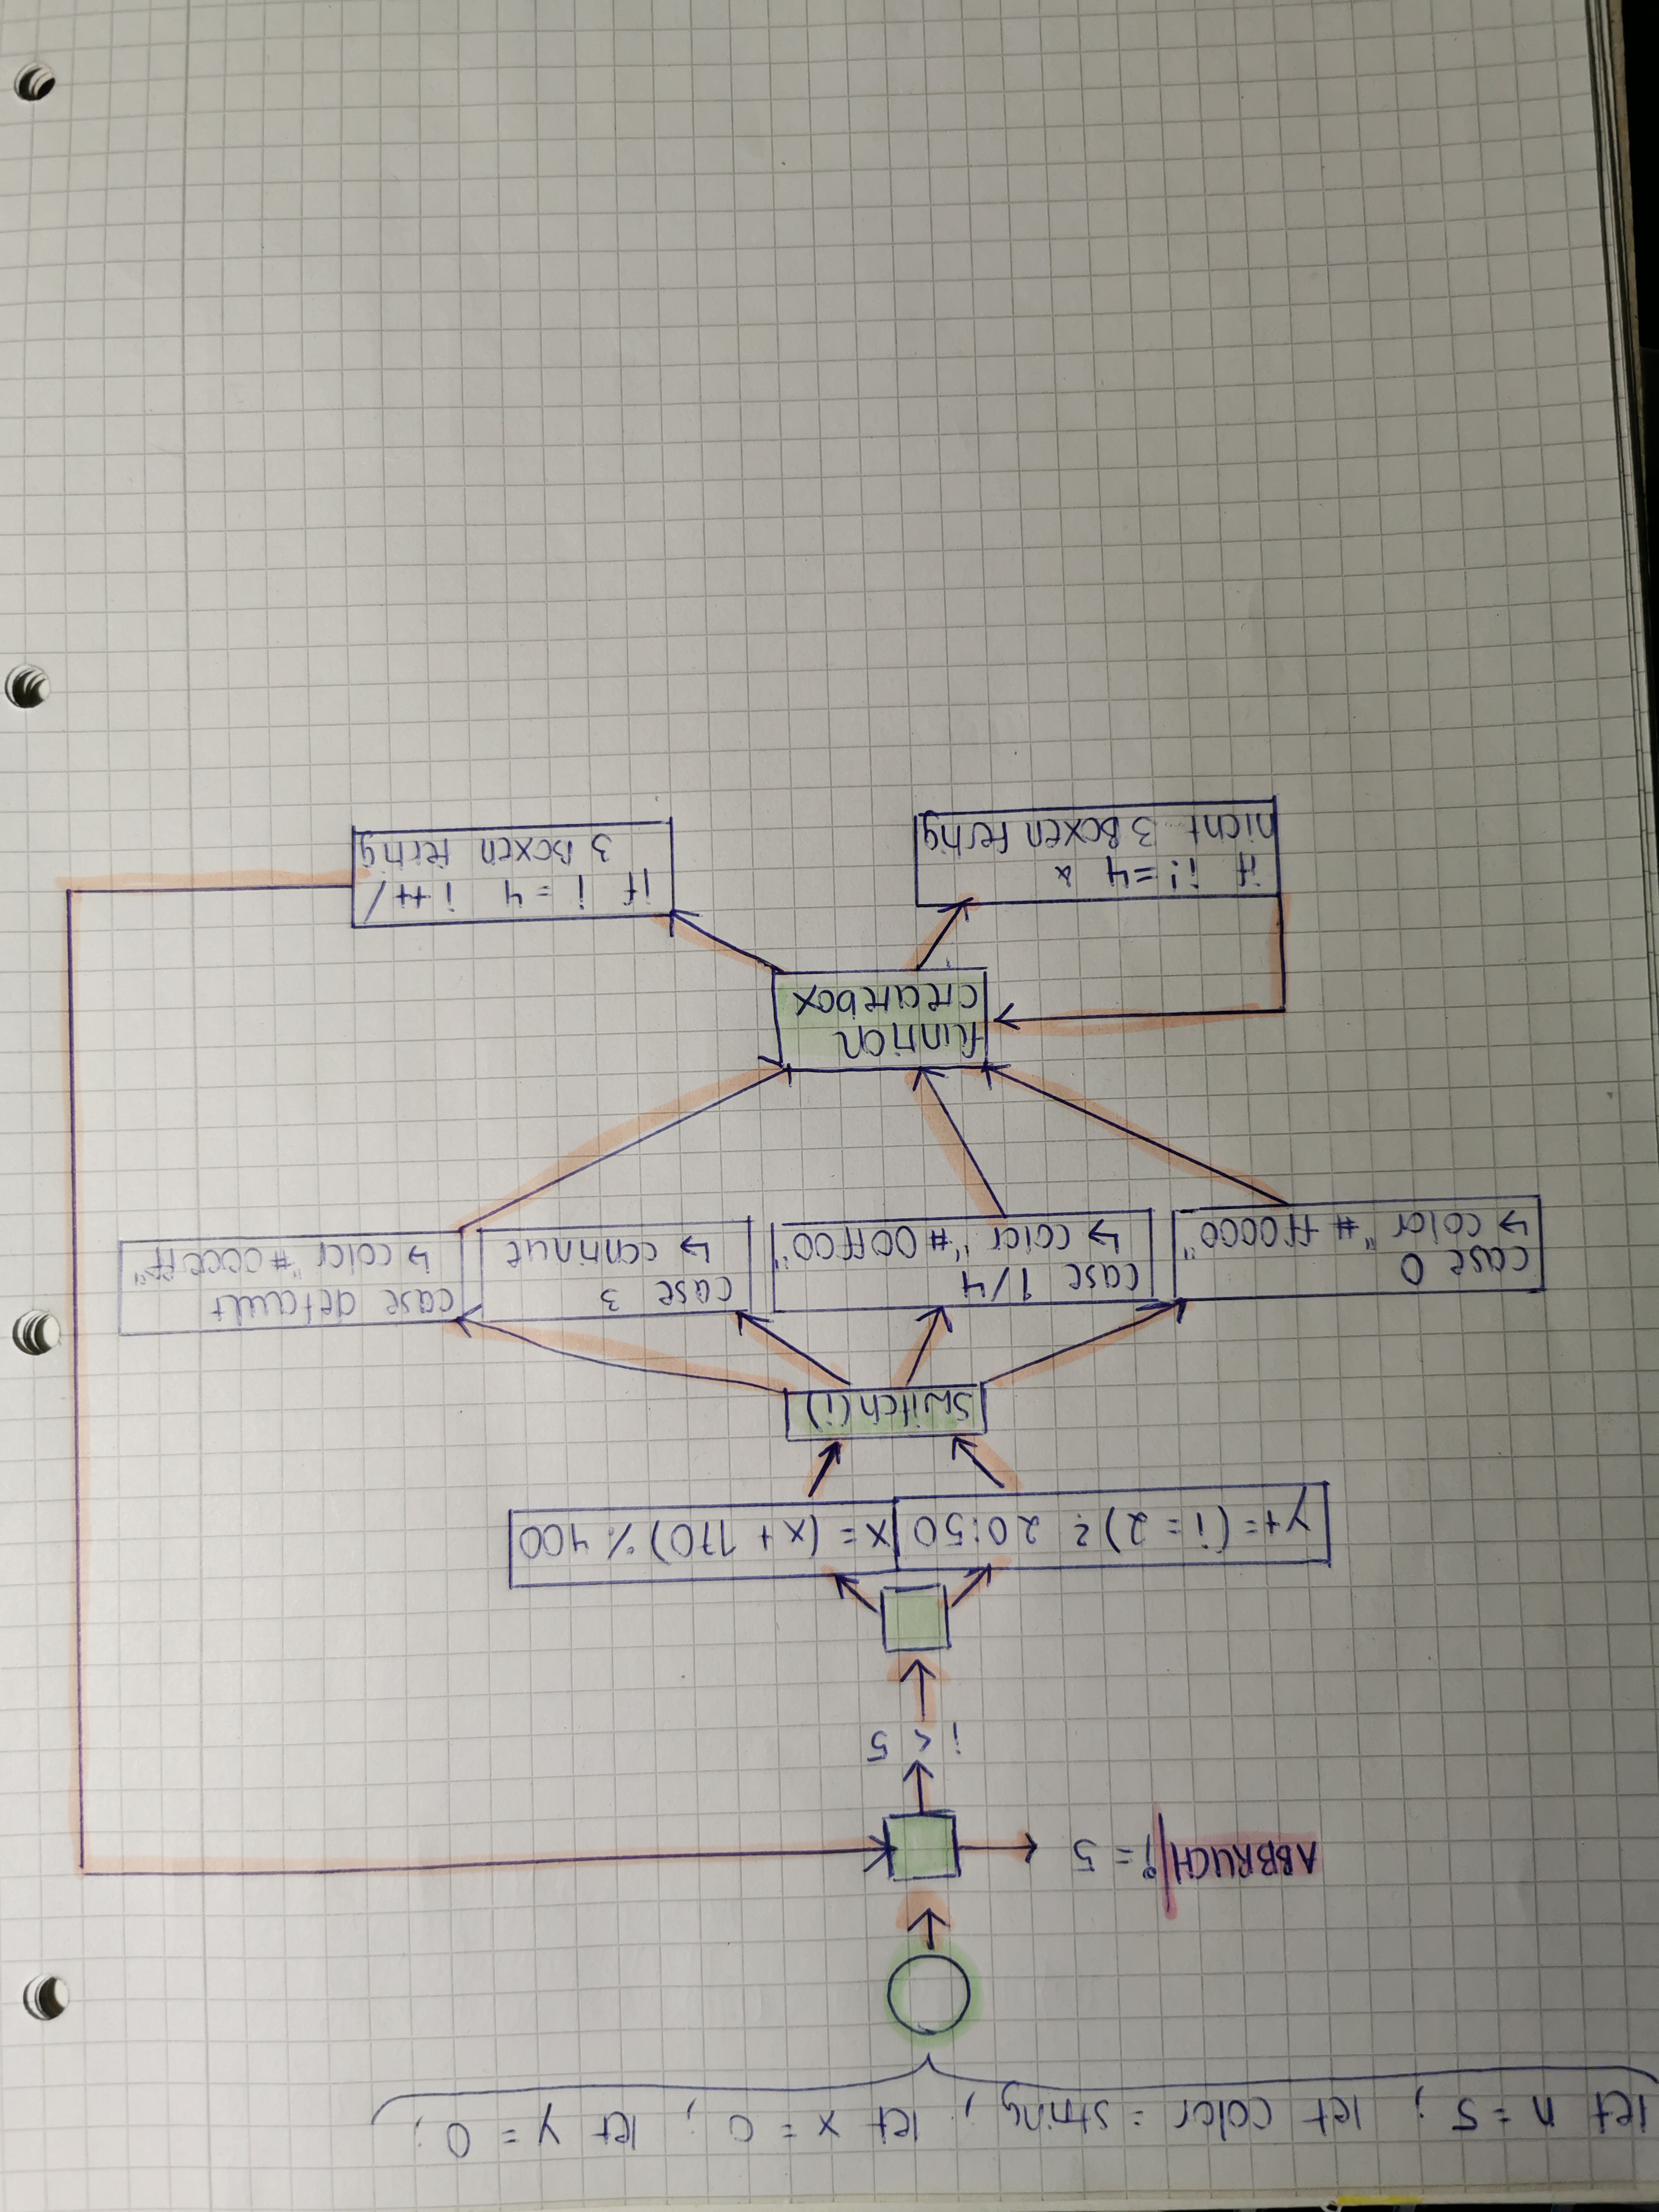 let n = 5 ; let color : string ; let x = 0 ; let y = 0 ;
ABBRUCH | i = 5
i < 5
y += (i = 2) ? 20 : 50
x = (x + 170) % 400
switch (i)
case 0
↳ color "# ff0000"
case 1/4
↳ color "# 00ff00"
case 3
↳ continue
case default
↳ color "# 0000ff"
funtion
createbox
if i! = 4 &
nicht 3 Boxen fertig
if i = 4 i++ /
3 Boxen fertig